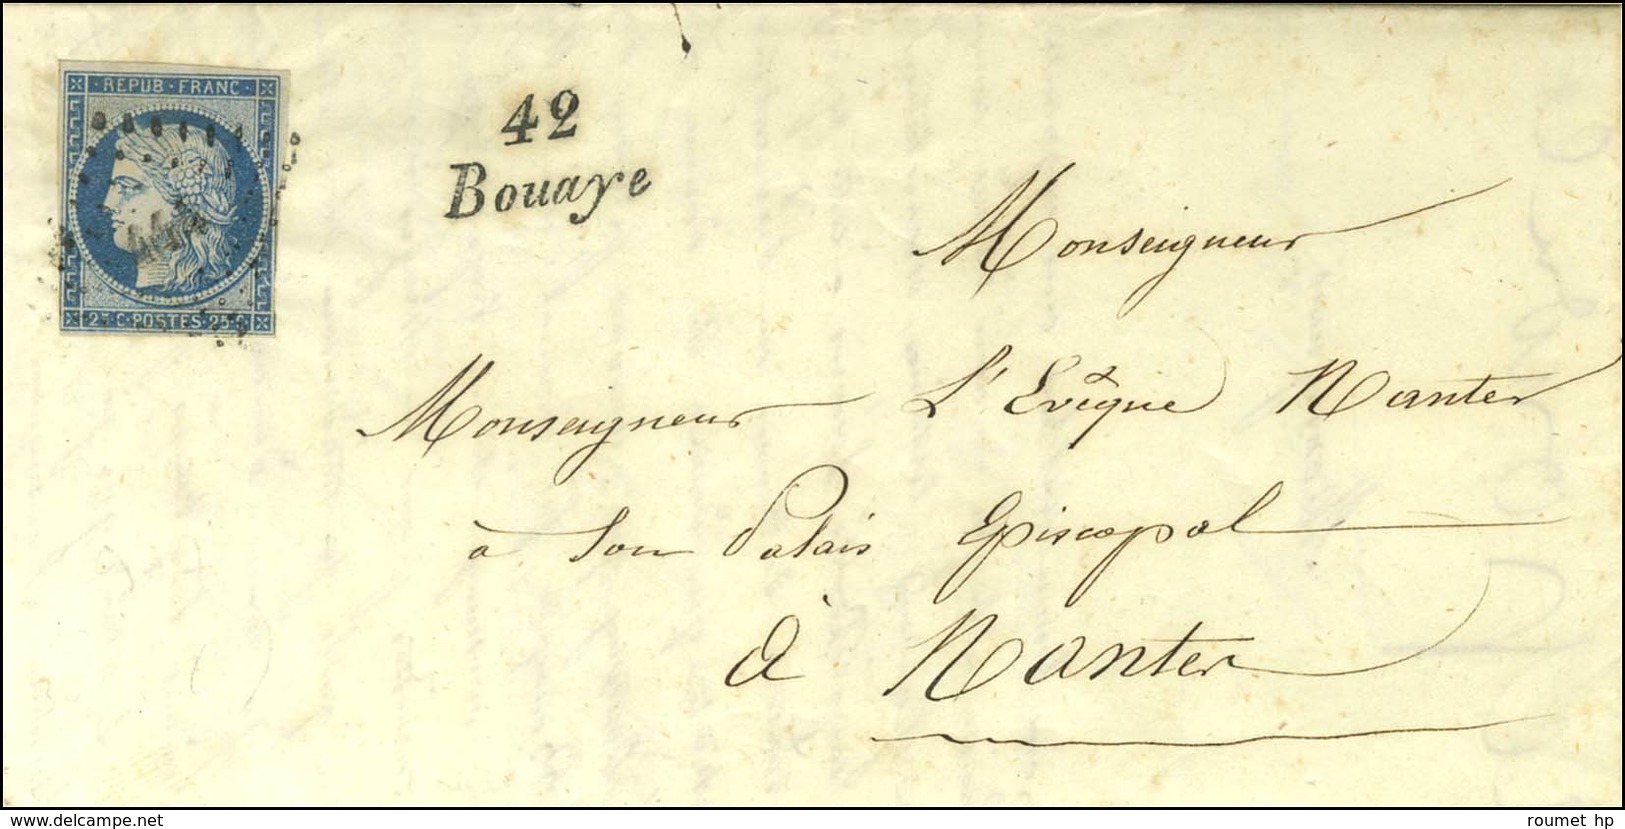 REPUB·FRANC
25 C·POSTES·25 C
42
Bouaye
Monseigneur
Monseigneur L'Evêque Nantes
à son Palais Episcopal
à Nantes
delcampe.net
roumet hp